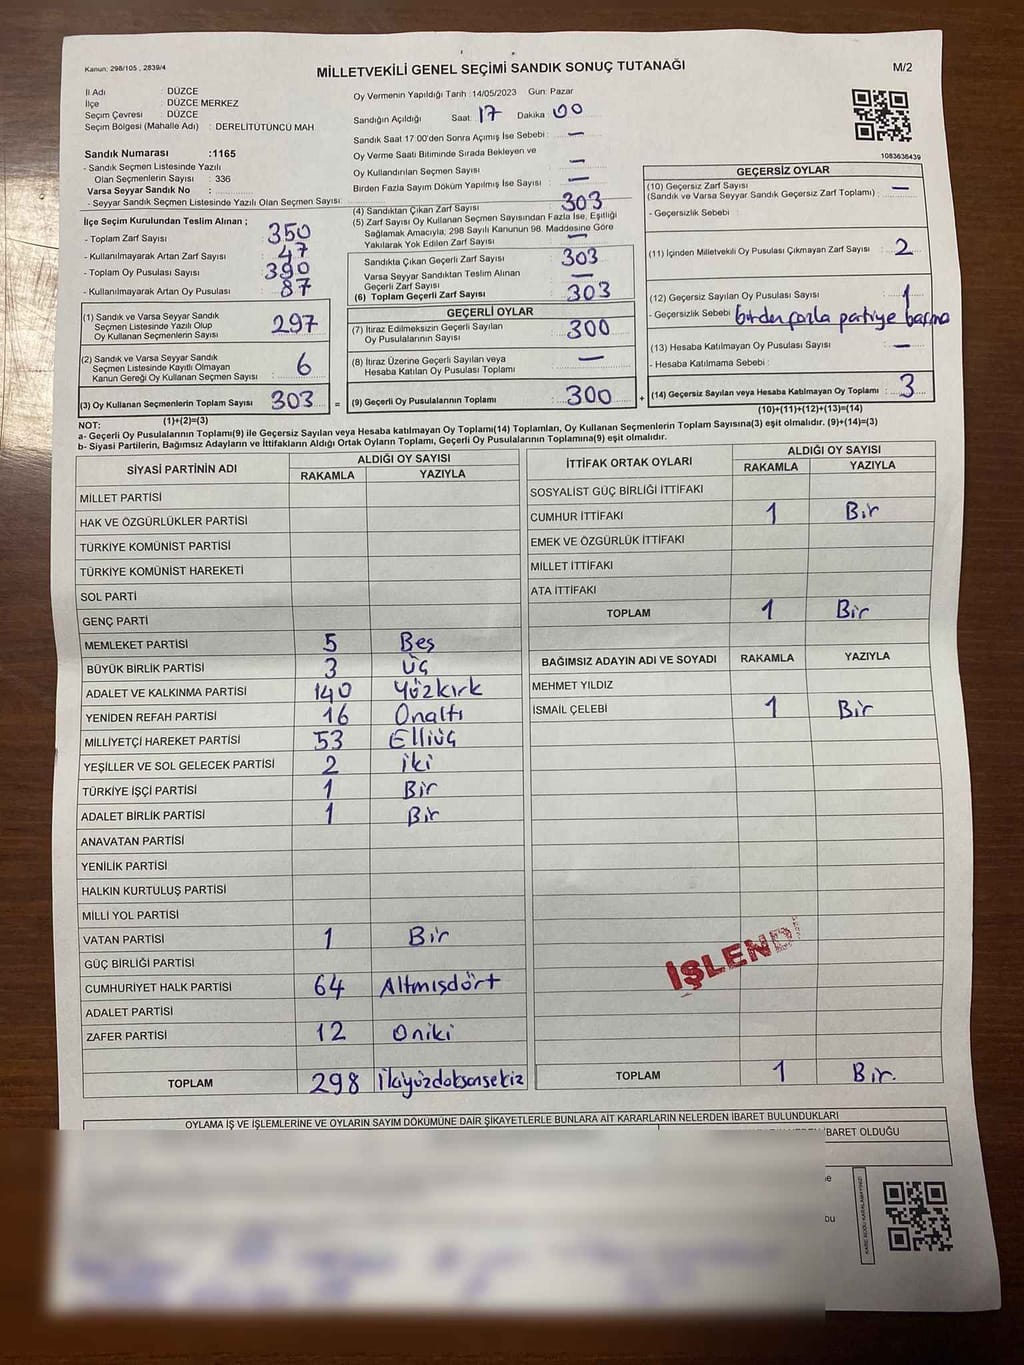 Kanun: 298/105 , 2839/4
MİLLETVEKİLİ GENEL SEÇİMİ SANDIK SONUÇ TUTANAĞI
M/2
İl Adı : DÜZCE
İlçe : DÜZCE MERKEZ
Seçim Çevresi : DÜZCE
Seçim Bölgesi (Mahalle Adı) : DERELİTÜTÜNCÜ MAH
Sandık Numarası :1165
- Sandık Seçmen Listesinde Yazılı
Olan Seçmenlerin Sayısı : 336
Varsa Seyyar Sandık No :
- Seyyar Sandık Seçmen Listesinde Yazılı Olan Seçmen Sayısı:
Oy Vermenin Yapıldığı Tarih :14/05/2023 Gün: Pazar
Sandığın Açıldığı Saat: 17 Dakika 00
Sandık Saat 17:00'den Sonra Açımış İse Sebebi : —
Oy Verme Saati Bitiminde Sırada Bekleyen ve
Oy Kullandırılan Seçmen Sayısı : —
Birden Fazla Sayım Döküm Yapılmış İse Sayısı : —
1083636439
İlçe Seçim Kurulundan Teslim Alınan ;
- Toplam Zarf Sayısı : 350
- Kullanılmayarak Artan Zarf Sayısı : 47
- Toplam Oy Pusulası Sayısı : 390
- Kullanılmayarak Artan Oy Pusulası : 87
(1) Sandık ve Varsa Seyyar Sandık
Seçmen Listesinde Yazılı Olup
Oy Kullanan Seçmenlerin Sayısı : 297
(2) Sandık ve Varsa Seyyar Sandık
Seçmen Listesinde Kayıtlı Olmayan
Kanun Gereği Oy Kullanan Seçmen Sayısı : 6
(3) Oy Kullanan Seçmenlerin Toplam Sayısı : 303 =
(1)+(2)=(3)
(4) Sandıktan Çıkan Zarf Sayısı : 303
(5) Zarf Sayısı Oy Kullanan Seçmen Sayısından Fazla İse, Eşitliği
Sağlamak Amacıyla; 298 Sayılı Kanunun 98. Maddesine Göre
Yakılarak Yok Edilen Zarf Sayısı : —
Sandıkta Çıkan Geçerli Zarf Sayısı : 303
Varsa Seyyar Sandıktan Teslim Alınan
Geçerli Zarf Sayısı : —
(6) Toplam Geçerli Zarf Sayısı : 303
GEÇERLİ OYLAR
(7) İtiraz Edilmeksizin Geçerli Sayılan
Oy Pusulalarının Sayısı : 300
(8) İtiraz Üzerine Geçerli Sayılan veya
Hesaba Katılan Oy Pusulası Toplamı : —
(9) Geçerli Oy Pusulalarının Toplamı : 300 +
GEÇERSİZ OYLAR
(10) Geçersiz Zarf Sayısı
(Sandık ve Varsa Seyyar Sandık Geçersiz Zarf Toplamı) : —
- Geçersizlik Sebebi :
(11) İçinden Milletvekili Oy Pusulası Çıkmayan Zarf Sayısı : 2
(12) Geçersiz Sayılan Oy Pusulası Sayısı : 1
- Geçersizlik Sebebi : birden fazla partiye basma
(13) Hesaba Katılmayan Oy Pusulası Sayısı : —
- Hesaba Katılmama Sebebi :
(14) Geçersiz Sayılan veya Hesaba Katılmayan Oy Toplamı : 3
(10)+(11)+(12)+(13)=(14)
NOT:
a- Geçerli Oy Pusulalarının Toplamı(9) ile Geçersiz Sayılan veya Hesaba katılmayan Oy Toplamı(14) Toplamları, Oy Kullanan Seçmenlerin Toplam Sayısına(3) eşit olmalıdır. (9)+(14)=(3)
b- Siyasi Partilerin, Bağımsız Adayların ve İttifakların Aldığı Ortak Oyların Toplamı, Geçerli Oy Pusulalarının Toplamına(9) eşit olmalıdır.
SİYASİ PARTİNİN ADI ALDIĞI OY SAYISI
RAKAMLA YAZIYLA
MİLLET PARTİSİ
HAK VE ÖZGÜRLÜKLER PARTİSİ
TÜRKİYE KOMÜNİST PARTİSİ
TÜRKİYE KOMÜNİST HAREKETİ
SOL PARTİ
GENÇ PARTİ
MEMLEKET PARTİSİ 5 Beş
BÜYÜK BİRLİK PARTİSİ 3 Üç
ADALET VE KALKINMA PARTİSİ 140 Yüzkırk
YENİDEN REFAH PARTİSİ 16 Onaltı
MİLLİYETÇİ HAREKET PARTİSİ 53 Elliüç
YEŞİLLER VE SOL GELECEK PARTİSİ 2 iki
TÜRKİYE İŞÇİ PARTİSİ 1 Bir
ADALET BİRLİK PARTİSİ 1 Bir
ANAVATAN PARTİSİ
YENİLİK PARTİSİ
HALKIN KURTULUŞ PARTİSİ
MİLLİ YOL PARTİSİ
VATAN PARTİSİ 1 Bir
GÜÇ BİRLİĞİ PARTİSİ
CUMHURİYET HALK PARTİSİ 64 Altmışdört
ADALET PARTİSİ
ZAFER PARTİSİ 12 Oniki
TOPLAM 298 İkiyüzdoksansekiz
İTTİFAK ORTAK OYLARI ALDIĞI OY SAYISI
RAKAMLA YAZIYLA
SOSYALİST GÜÇ BİRLİĞİ İTTİFAKI
CUMHUR İTTİFAKI 1 Bir
EMEK VE ÖZGÜRLÜK İTTİFAKI
MİLLET İTTİFAKI
ATA İTTİFAKI
TOPLAM 1 Bir
BAĞIMSIZ ADAYIN ADI VE SOYADI RAKAMLA YAZIYLA
MEHMET YILDIZ
İSMAİL ÇELEBİ 1 Bir
İŞLENDİ
TOPLAM 1 Bir.
OYLAMA İŞ VE İŞLEMLERİNE VE OYLARIN SAYIM DÖKÜMÜNE DAİR ŞİKAYETLERLE BUNLARA AİT KARARLARIN NELERDEN İBARET BULUNDUKLARI
İBARET OLDUĞU